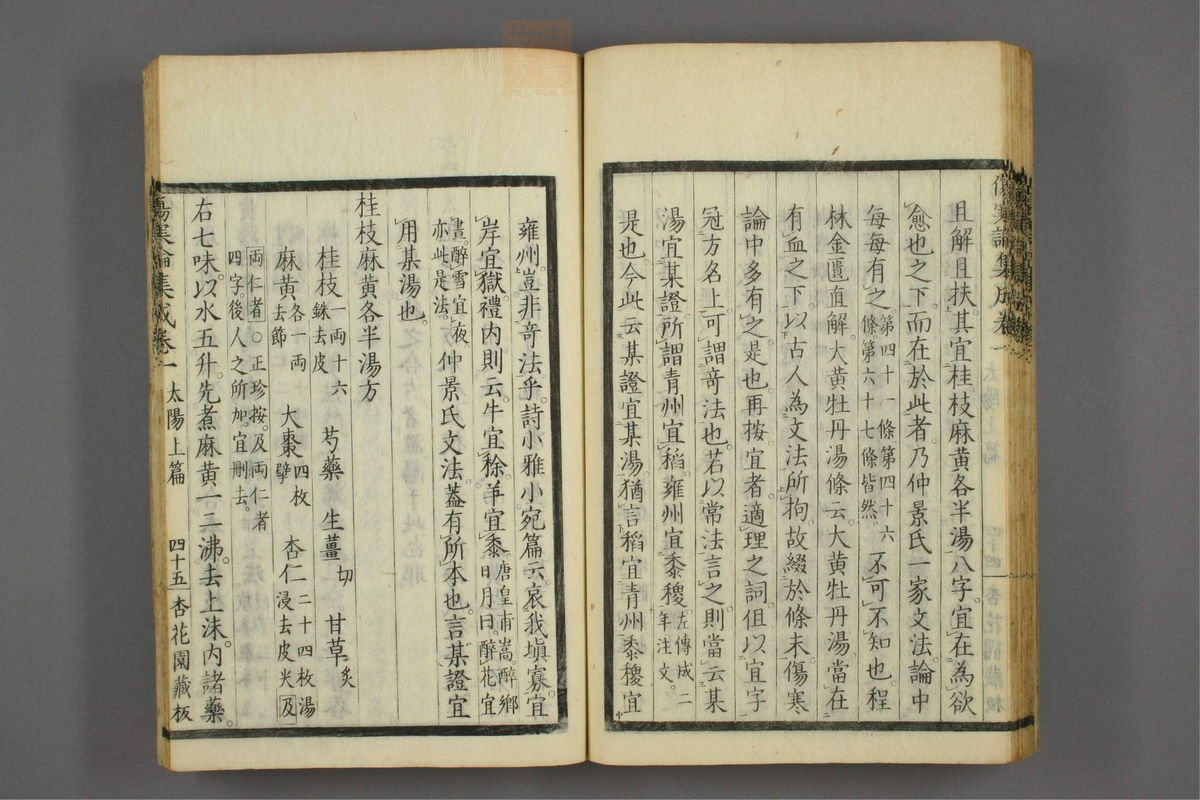 且解且扶其宜桂枝麻黄各半湯八字宜在為欲
愈也之下而在於此者乃仲景氏一家文法論中
每每有之第四十一條第四十六條第六十七條皆然不可不知也程
林金匱直解大黄牡丹湯條云大黄牡丹湯當在
有血之下以古人為文法所拘故綴於條末傷寒
論中多有之是也再按宜者適理之詞但以宜字
冠方名上可謂奇法也若以常法言之則當云某
湯宜某證所謂青州宜稻雍州宜黍稷左傳成二年注文
是也今此云某證宜某湯猶言稻宜青州黍稷宜
雍州豈非奇法乎詩小雅小宛篇云哀我塡寡宜
岸宜獄禮内則云牛宜稌羊宜黍唐皇甫嵩醉鄉日月曰醉花宜
晝醉雪宜夜亦此是法仲景氏文法蓋有所本也言某證宜
用某湯也
桂枝麻黄各半湯方
桂枝一兩十六銖去皮 芍藥 生薑切 甘草炙
麻黄各一兩去節 大棗四枚擘 杏仁二十四枚湯浸去皮尖及
兩仁者○正珍按及兩仁者四字後人之所加宜刪去
右七味以水五升先煮麻黄一二沸去上沫内諸藥
傷寒論集成卷一 太陽上篇 四十五 杏花園藏板